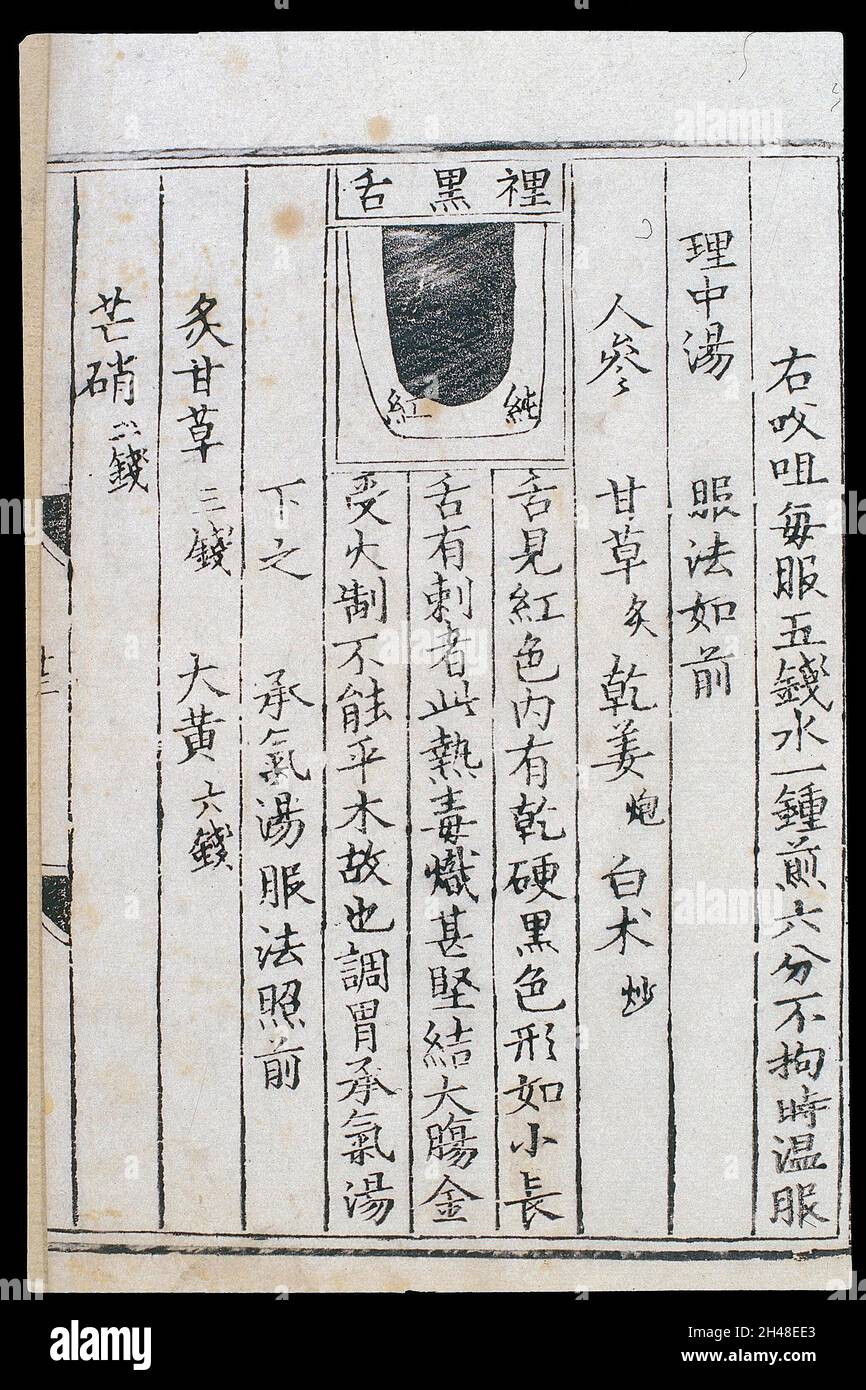 右㕮咀每服五錢水一鍾煎六分不拘時温服
理中湯 服法如前
人參 甘草炙 乾姜炮 白术炒
裡黑舌
純紅
舌見紅色內有乾硬黑色形如小長
舌有刺者此熱毒熾甚堅結大腸金
受火制不能平木故也調胃承氣湯
下之 承氣湯服法照前
炙甘草三錢 大黃六錢
芒硝 錢
alamy
Image ID: 2H48EE3
www.alamy.com